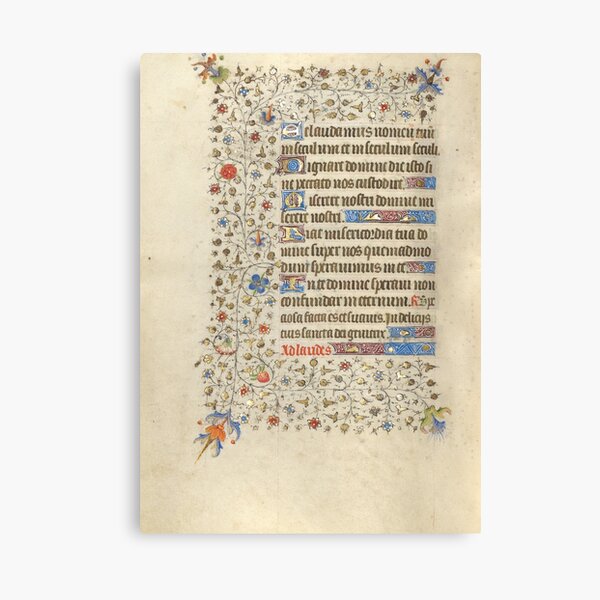 Et laudamus nomen tuū
in seculum et in seculum seculi.
Dignare domine die isto si
ne peccato nos custodire.
Miserere nostri domine mi
serere nostri.
Fiat misericordia tua do
mine super nos quemadmo
dum speravimus in te.
In te domine speravi non
confundar in eternum. Spe
ciosa facta es et suavis. In deliciis
tuis sancta dei genitrix.
Ad laudes